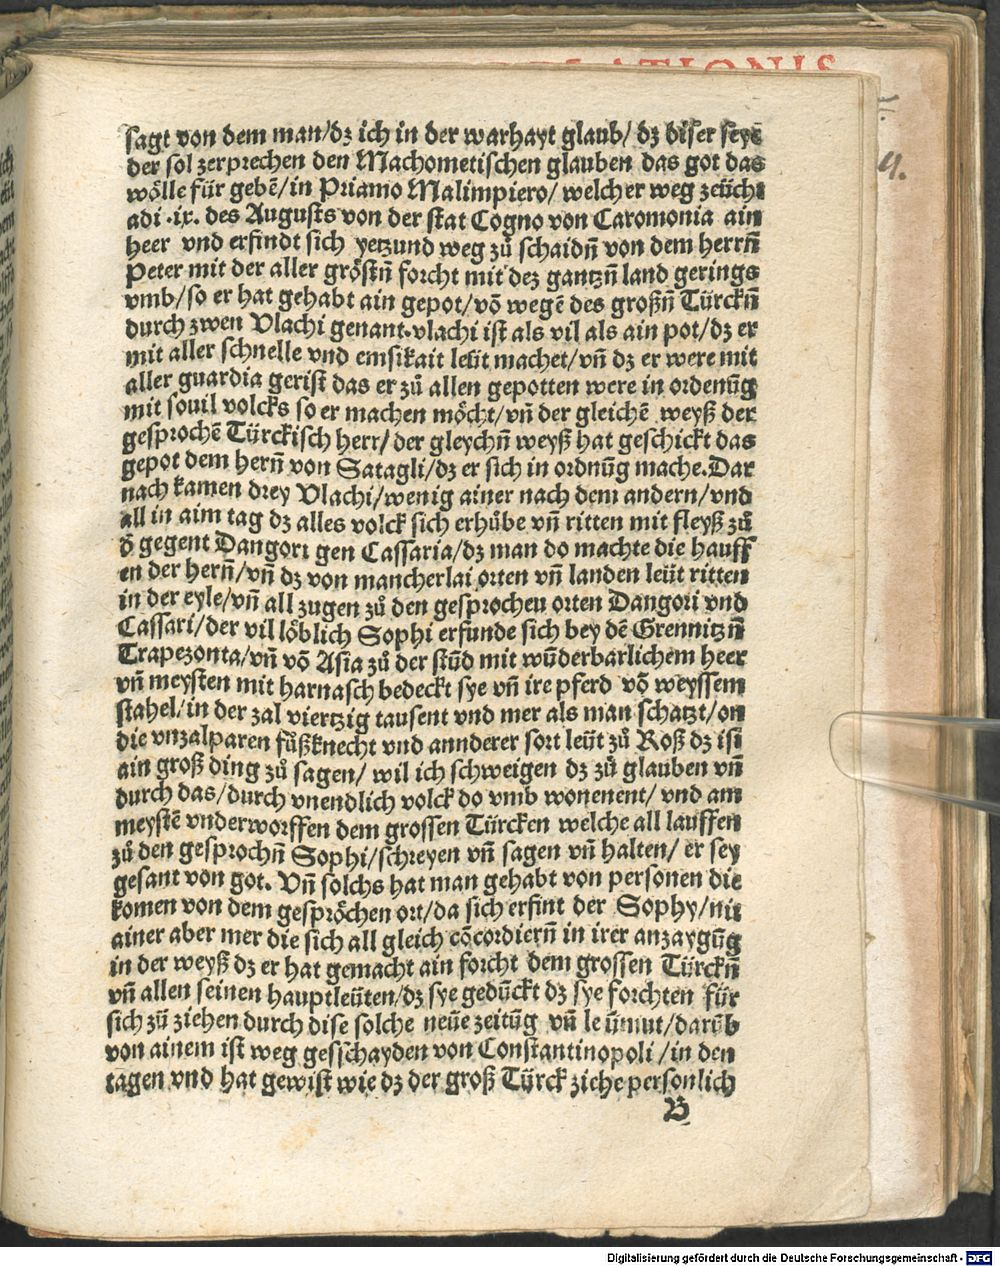 sagt von dem man/dz ich in der warhayt glaub/ dz diser seye
der sol zerprechen den Machometischen glauben das got das
wölle für gebē/in Priamo Malimpiero/ welcher weg zeücht
adi .ix. des Augusts von der stat Cogno von Caromonia ain
heer vnd erfindt sich yetzund weg zů schaidn̄ von dem herrn̄
Peter mit der aller gröstn̄ forcht mit dez gantzn̄ land gerings
vmb/so er hat gehabt ain gepot/vō wegē des großn̄ Türckn̄
durch zwen Vlachi genant.vlachi ist als vil als ain pot/dz er
mit aller schnelle vnd emsikait leüt machet/vn̄ dz er were mit
aller guardia gerist das er zů allen gepotten were in ordenūg
mit souil volcks so er machen möcht/vn̄ der gleichē weyß der
gesprochē Türckisch herr/der gleychn̄ weyß hat geschickt das
gepot dem hern̄ von Satagli/dz er sich in ordnūg mache.Dar
nach kamen drey Vlachi/wenig ainer nach dem andern/vnd
all in aim tag dz alles volck sich erhůbe vn̄ ritten mit fleyß zů
d̄ gegent Dangori gen Cassaria/dz man do machte die hauff
en der hern̄/vn̄ dz von mancherlai orten vn̄ landen leüt ritten
in der eyle/vn̄ all zugen zů den gesprochen orten Dangori vnd
Cassari/der vil löblich Sophi erfunde sich bey dē Grennitzn̄
Trapezonta/vn̄ vō Asia zů der stūd mit wūderbarlichem heer
vn̄ meysten mit harnasch bedeckt sye vn̄ ire pferd vō weyssem
stahel/in der zal viertzig tausent vnd mer als man schatzt/on
die vnzalparen fůßknecht vnd annderer sort leüt zů Roß dz ist
ain groß ding zů sagen/ wil ich schweigen dz zů glauben vn̄
durch das/durch vnendlich volck do vmb wonenent/ vnd am
meystē vnderworffen dem grossen Türcken welche all lauffen
zů den gesprochn̄ Sophi/schreyen vn̄ sagen vn̄ halten/ er sey
gesant von got. Vn̄ solchs hat man gehabt von personen die
komen von dem gespröchen ort/da sich erfint der Sophy/nit
ainer aber mer die sich all gleich cōcordiern̄ in irer anzaygūg
in der weyß dz er hat gemacht ain forcht dem grossen Türckn̄
vn̄ allen seinen hauptleüten/dz sye gedūckt dz sye forchten für
sich zů ziehen durch dise solche neüe zeitūg vn̄ le ümut/darūb
von ainem ist weg geschayden von Constantinopoli /in den
tagen vnd hat gewist wie dz der groß Türck ziehe personlich
B
Digitalisierung gefördert durch die Deutsche Forschungsgemeinschaft - DFG